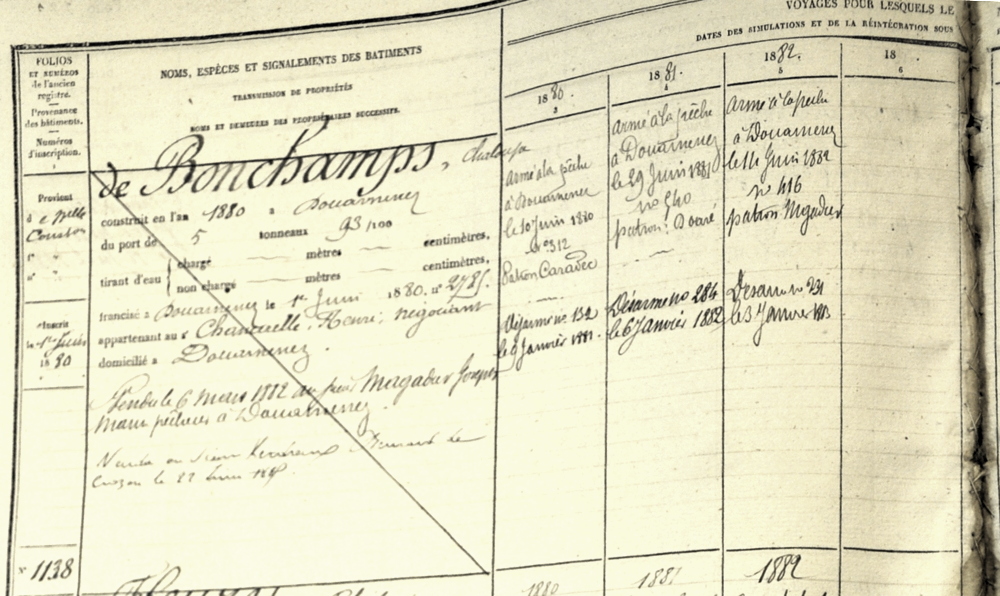 VOYAGES POUR LESQUELS LE
DATES DES SIMULATIONS ET DE LA RÉINTÉGRATION SOUS
FOLIOS
ET NUMÉROS
de l'ancien
registre.
Provenance
des bâtiments.
Numéros
d'inscription.
1
NOMS, ESPÈCES ET SIGNALEMENTS DES BATIMENTS
TRANSMISSION DE PROPRIÉTÉS
NOMS ET DEMEURES DES PROPRIÉTAIRES SUCCESSIFS.
1880.
3
1881.
4
1882.
5
18
6
Provient
de Bonchamps, chaloupe
construit en l'an 1880 a Douarnenez
du port de 5 tonneaux 93/100
tirant d'eau
chargé — mètres — centimètres,
non chargé — mètres — centimètres,
francisé à Douarnenez le 1er Juin 1880. n° 2785.
appartenant au Sr Chancerelle, Henri, négociant
domicilié à Douarnenez.
Vendu le 6 mars 1882 au sieur Morgadur Joseph
marin pêcheur à Douarnenez.
Crozon le 22 Juin
Inscrit
le 1er Juin
1880
N° 1138
Armé à la pêche
à Douarnenez
le 10 Juin 1880
n° 312
Patron Caradec
Désarmé n° 132
le 9 Janvier 1881.
Armé à la pêche
à Douarnenez
le 29 Juin 1881
n° 540
patron: Doaré
Désarmé n° 284
le 6 Janvier 1882
Armé à la pêche
à Douarnenez
le 14 Juin 1882
n° 416
patron Mgadur
Désarmé n° 231
le 3 Janvier 1883
1880
1881
1882